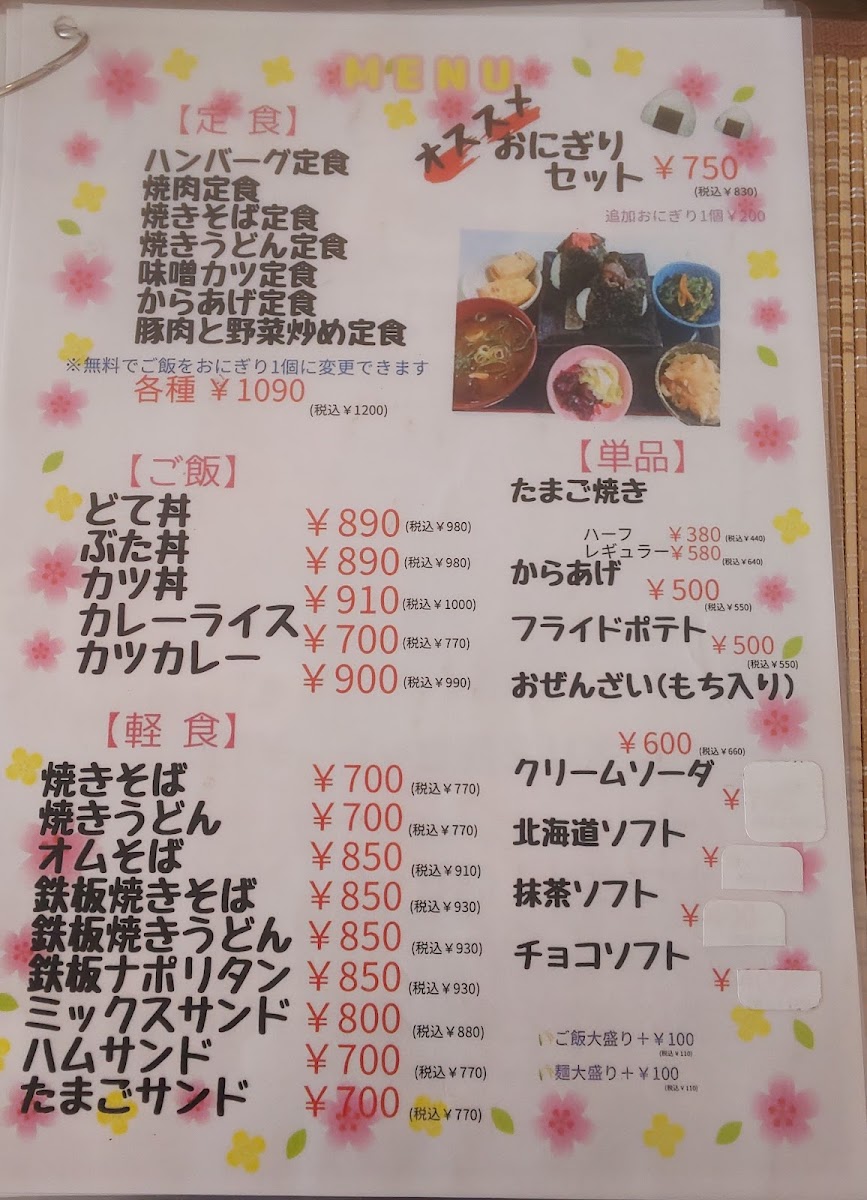 MENU
【定 食】
ハンバーグ定食
焼肉定食
焼きそば定食
焼きうどん定食
味噌カツ定食
からあげ定食
豚肉と野菜炒め定食
※無料でご飯をおにぎり1個に変更できます
各種 ￥1090
(税込￥1200)
オススメ
おにぎり
セット ￥750
(税込￥830)
追加おにぎり1個￥200
【ご飯】
どて丼 ￥890 (税込￥980)
ぶた丼 ￥890 (税込￥980)
カツ丼 ￥910 (税込￥1000)
カレーライス ￥700 (税込￥770)
カツカレー ￥900 (税込￥990)
【軽 食】
焼きそば ￥700 (税込￥770)
焼きうどん ￥700 (税込￥770)
オムそば ￥850 (税込￥910)
鉄板焼きそば ￥850 (税込￥930)
鉄板焼きうどん ￥850 (税込￥930)
鉄板ナポリタン ￥850 (税込￥930)
ミックスサンド ￥800 (税込￥880)
ハムサンド ￥700 (税込￥770)
たまごサンド ￥700 (税込￥770)
【単品】
たまご焼き
ハーフ ￥380 (税込￥440)
レギュラー￥580 (税込￥640)
からあげ ￥500
(税込￥550)
フライドポテト ￥500
(税込￥550)
おぜんざい(もち入り)
￥600 (税込￥660)
クリームソーダ
￥
北海道ソフト
￥
抹茶ソフト
￥
チョコソフト
￥
ご飯大盛り＋￥100
(税込￥110)
麺大盛り＋￥100
(税込￥110)